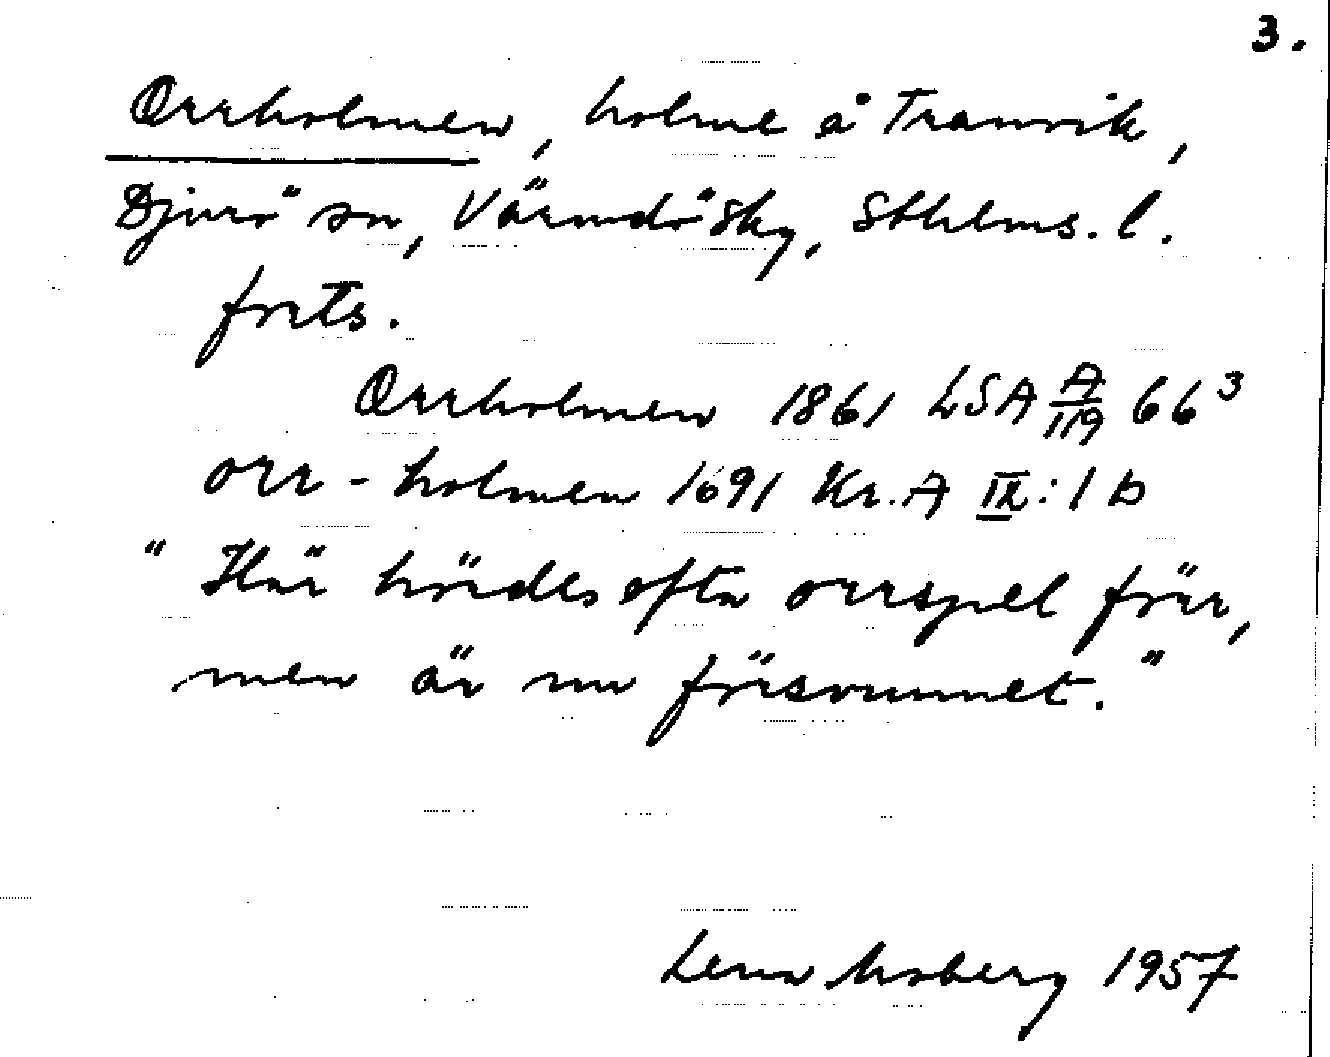 3.
Orrholmen, holme å Tranvik,
Djurö sn, Värmdö Skg, Sthlms. l.
forts.
Orrholmen 1861 LSA A/119 66³
orr-holmen 1691 Kr. A IX:1 b
"Här hördes ofta orrspel förr,
men är nu försvunnet."
Lena Moberg 1957